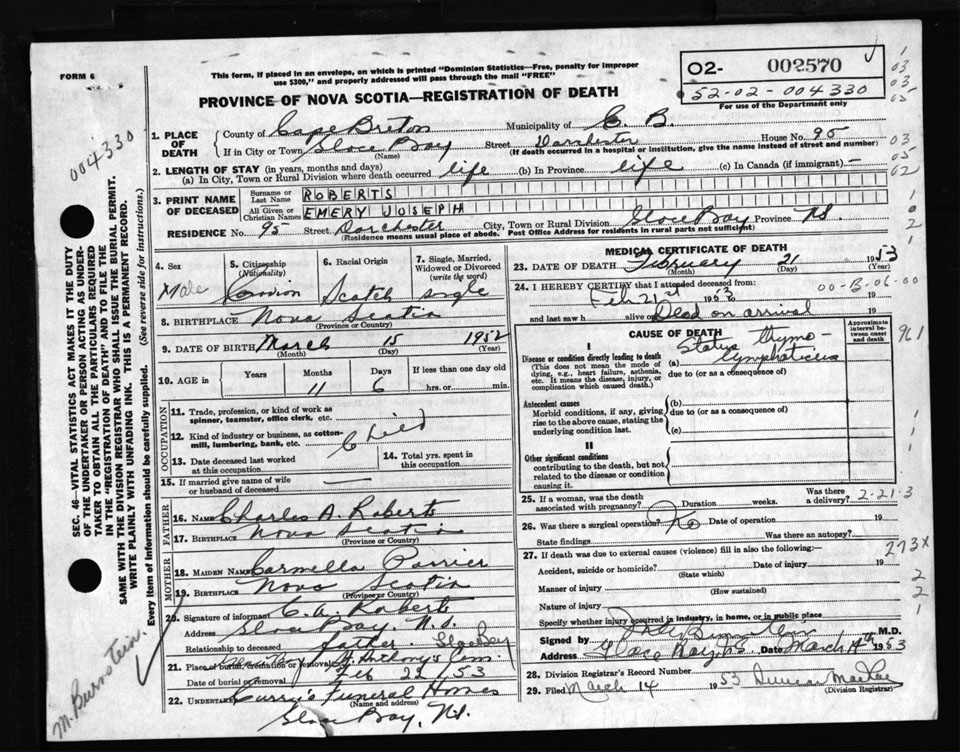 FORM 6
This form, if placed in an envelope, on which is printed "Dominion Statistics—Free, penalty for improper
use $300," and properly addressed will pass through the mail "FREE"
PROVINCE OF NOVA SCOTIA—REGISTRATION OF DEATH
02- 002570
52-02-004330
For use of the Department only
004330
1. PLACE OF DEATH
County of Cape Breton Municipality of C. B.
If in City or Town Glace Bay Street Dorchester House No. 95
(Name) (If death occurred in a hospital or institution, give the name instead of street and number)
2. LENGTH OF STAY (in years, months and days)
(a) In City, Town or Rural Division where death occurred life (b) In Province life (c) In Canada (if immigrant) —
3. PRINT NAME OF DECEASED
Surname or Last Name ROBERTS
All Given or Christian Names EMERY JOSEPH
RESIDENCE No. 95 Street Dorchester City, Town or Rural Division Glace Bay Province N.S.
(Residence means usual place of abode. Post Office Address for residents in rural parts not sufficient)
4. Sex Male
5. Citizenship (Nationality)
6. Racial Origin Scotch
7. Single, Married, Widowed or Divorced (write the word) single
8. BIRTHPLACE Nova Scotia
(Province or Country)
9. DATE OF BIRTH March 15 1952
(Month) (Day) (Year)
10. AGE in Years Months 11 Days 6 If less than one day old hrs. or min.
OCCUPATION
11. Trade, profession, or kind of work as
spinner, teamster, office clerk, etc.
12. Kind of industry or business, as cotton-
mill, lumbering, bank, etc. Child
13. Date deceased last worked
at this occupation
14. Total yrs. spent in
this occupation
15. If married give name of wife
or husband of deceased —
FATHER
16. Name Charles A. Roberts
17. Birthplace Nova Scotia
(Province or Country)
MOTHER
18. MAIDEN NAME Carmella Poirier
19. BIRTHPLACE Nova Scotia
(Province or Country)
20. Signature of informant C. A. Roberts
Address Glace Bay, N.S.
Relationship to deceased father
21. Place of burial, cremation or removal St. Anthony's Cem. Glace Bay
Date of burial or removal Feb 22/53
22. Undertaker Curry's Funeral Homes
(Name and address)
Glace Bay, N.S.
MEDICAL CERTIFICATE OF DEATH
23. DATE OF DEATH February 21 1953
(Month) (Day) (Year)
24. I HEREBY CERTIFY that I attended deceased from:
Feb 21st 1953 to 19
and last saw h alive on Dead on arrival 19
00-B-06-00
CAUSE OF DEATH
Approximate interval between onset and death
I
Disease or condition directly leading to death
(This does not mean the mode of
dying, e.g., heart failure, asthenia,
etc. It means the disease, injury, or
complication which caused death.)
(a) Status thymo-
lymphaticus
due to (or as a consequence of)
Antecedent causes
Morbid conditions, if any, giving
rise to the above cause, stating the
underlying condition last.
(b)
due to (or as a consequence of)
(c)
II
Other significant conditions
contributing to the death, but not
related to the disease or condition
causing it.
25. If a woman, was the death
associated with pregnancy? Duration weeks. Was there a delivery?
2-21-3
26. Was there a surgical operation? No Date of operation 19
State findings Was there an autopsy?
27. If death was due to external causes (violence) fill in also the following:—
273X
Accident, suicide or homicide? Date of injury 19
(State which)
Manner of injury
(How sustained)
Nature of injury
Specify whether injury occurred in industry, in home, or in public place
Signed by M.D.
Address Glace Bay, N.S. Date March 14th 1953
28. Division Registrar's Record Number
29. Filed March 14 1953
(Division Registrar)
SEC. 46—VITAL STATISTICS ACT MAKES IT THE DUTY
OF THE UNDERTAKER OR PERSON ACTING AS UNDER-
TAKER TO OBTAIN ALL THE PARTICULARS REQUIRED
IN THE "REGISTRATION OF DEATH" AND TO FILE THE
SAME WITH THE DIVISION REGISTRAR WHO SHALL ISSUE THE BURIAL PERMIT.
WRITE PLAINLY WITH UNFADING INK. THIS IS A PERMANENT RECORD.
Every item of information should be carefully supplied. (See reverse side for instructions.)
M. Burnstein.